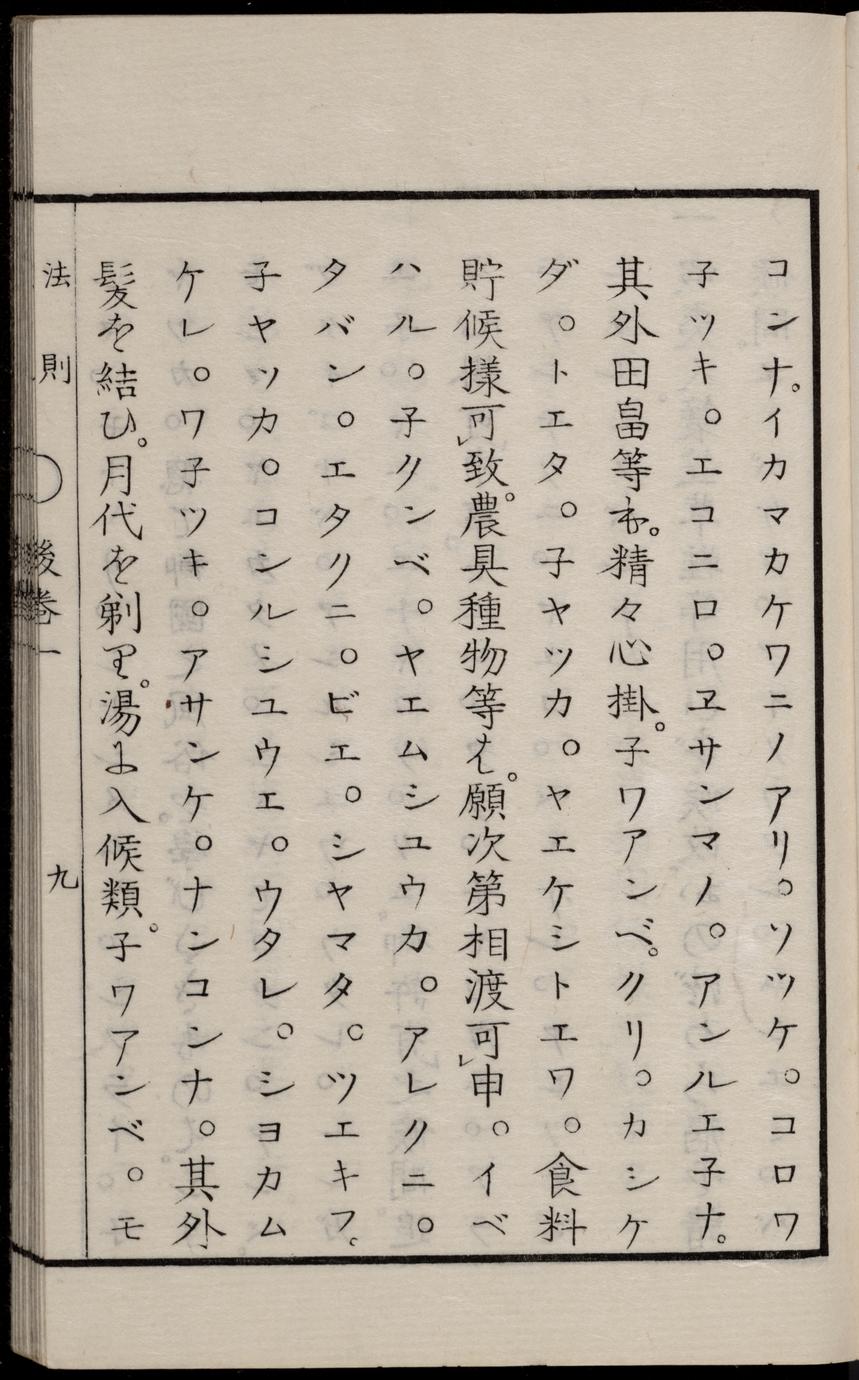 コンナ。イカマカケワニノアリ。ソツケ。コロワ
子ツキ。エコニロ。ヱサンマノ。アンルエ子ナ。
其外田畠等も。精々心掛。子ワアンベ。クリ。カシケ
ダ。トエタ。子ヤツカ。ヤエケシトエワ。食料
貯候様可㆑致。農具種物等は。願次第相渡可㆑申。イベ
ハル。子クンベ。ヤエムシユウカ。アレクニ。
タバン。エタクニ。ビエ。シヤマタ。ツエキフ。
子ヤソカ。コンルシユウエ。ウタレ。シヨカム
ケレ。ワ子ツキ。アサンケ。ナンコンナ。其外
髪を結ひ。月代を剃り。湯に入候類。子ワアンベ。モ
法則 ○ 後巻一 九